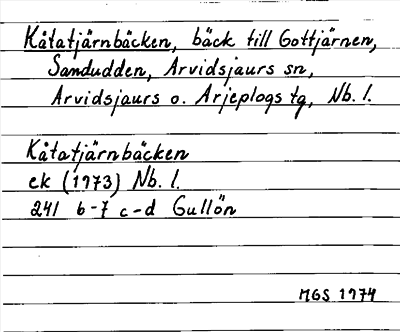 Kåtatjärnbäcken, bäck till Gottjärnen,
Sandudden, Arvidsjaurs sn,
Arvidsjaurs o. Arjeplogs tg, Nb. l.
Kåtatjärnbäcken
ek (1973) Nb. l.
241 6-7 c-d Gullön
MGS 1974